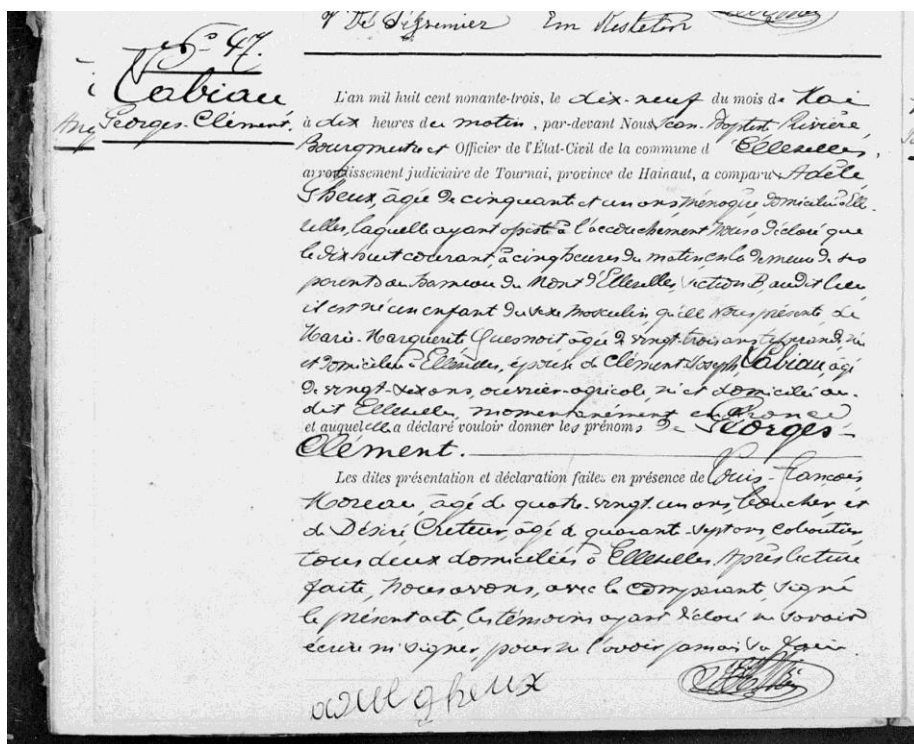 N° 47.
Labiau
Georges-Clément.
L'an mil huit cent nonante-trois, le dix-neuf du mois de Mai
à dix heures du matin, par-devant Nous Jean-Baptiste Rivière,
Bourgmestre et Officier de l'État-Civil de la commune d'Ellezelles,
arrondissement judiciaire de Tournai, province de Hainaut, a comparu Adèle
Gheux, âgée de cinquante et un ans, ménagère, domiciliée à Elle-
zelles, laquelle ayant assisté à l'accouchement Nous a déclaré que
le dix huit courant, à cinq heures du matin, en la demeure de ses
parents au hameau du Mont d'Ellezelles, section B, audit lieu
il est né un enfant du sexe masculin, qu'elle Nous présente, de
Marie-Marguerite Quesnoit âgée de vingt-trois ans, née
et domiciliée à Ellezelles, épouse de Clément Joseph Labiau, âgé
de vingt-six ans, ouvrier-agricole, né et domicilié au-
dit Ellezelles, momentanément en France
et auquel elle a déclaré vouloir donner les prénoms de Georges-
Clément.
Les dites présentation et déclaration faites en présence de Louis-François
Moreau, âgé de quatre-vingt-un ans, boucher, et
de Désiré Creteur, âgé de quarante-sept ans, cabaretier,
tous deux domiciliés à Ellezelles. Après lecture
faite, Nous avons, avec le comparant, signé
le présent acte, les témoins ayant déclaré ne savoir
écrire ni signer, pour ne l'avoir jamais su faire.
adele gheux